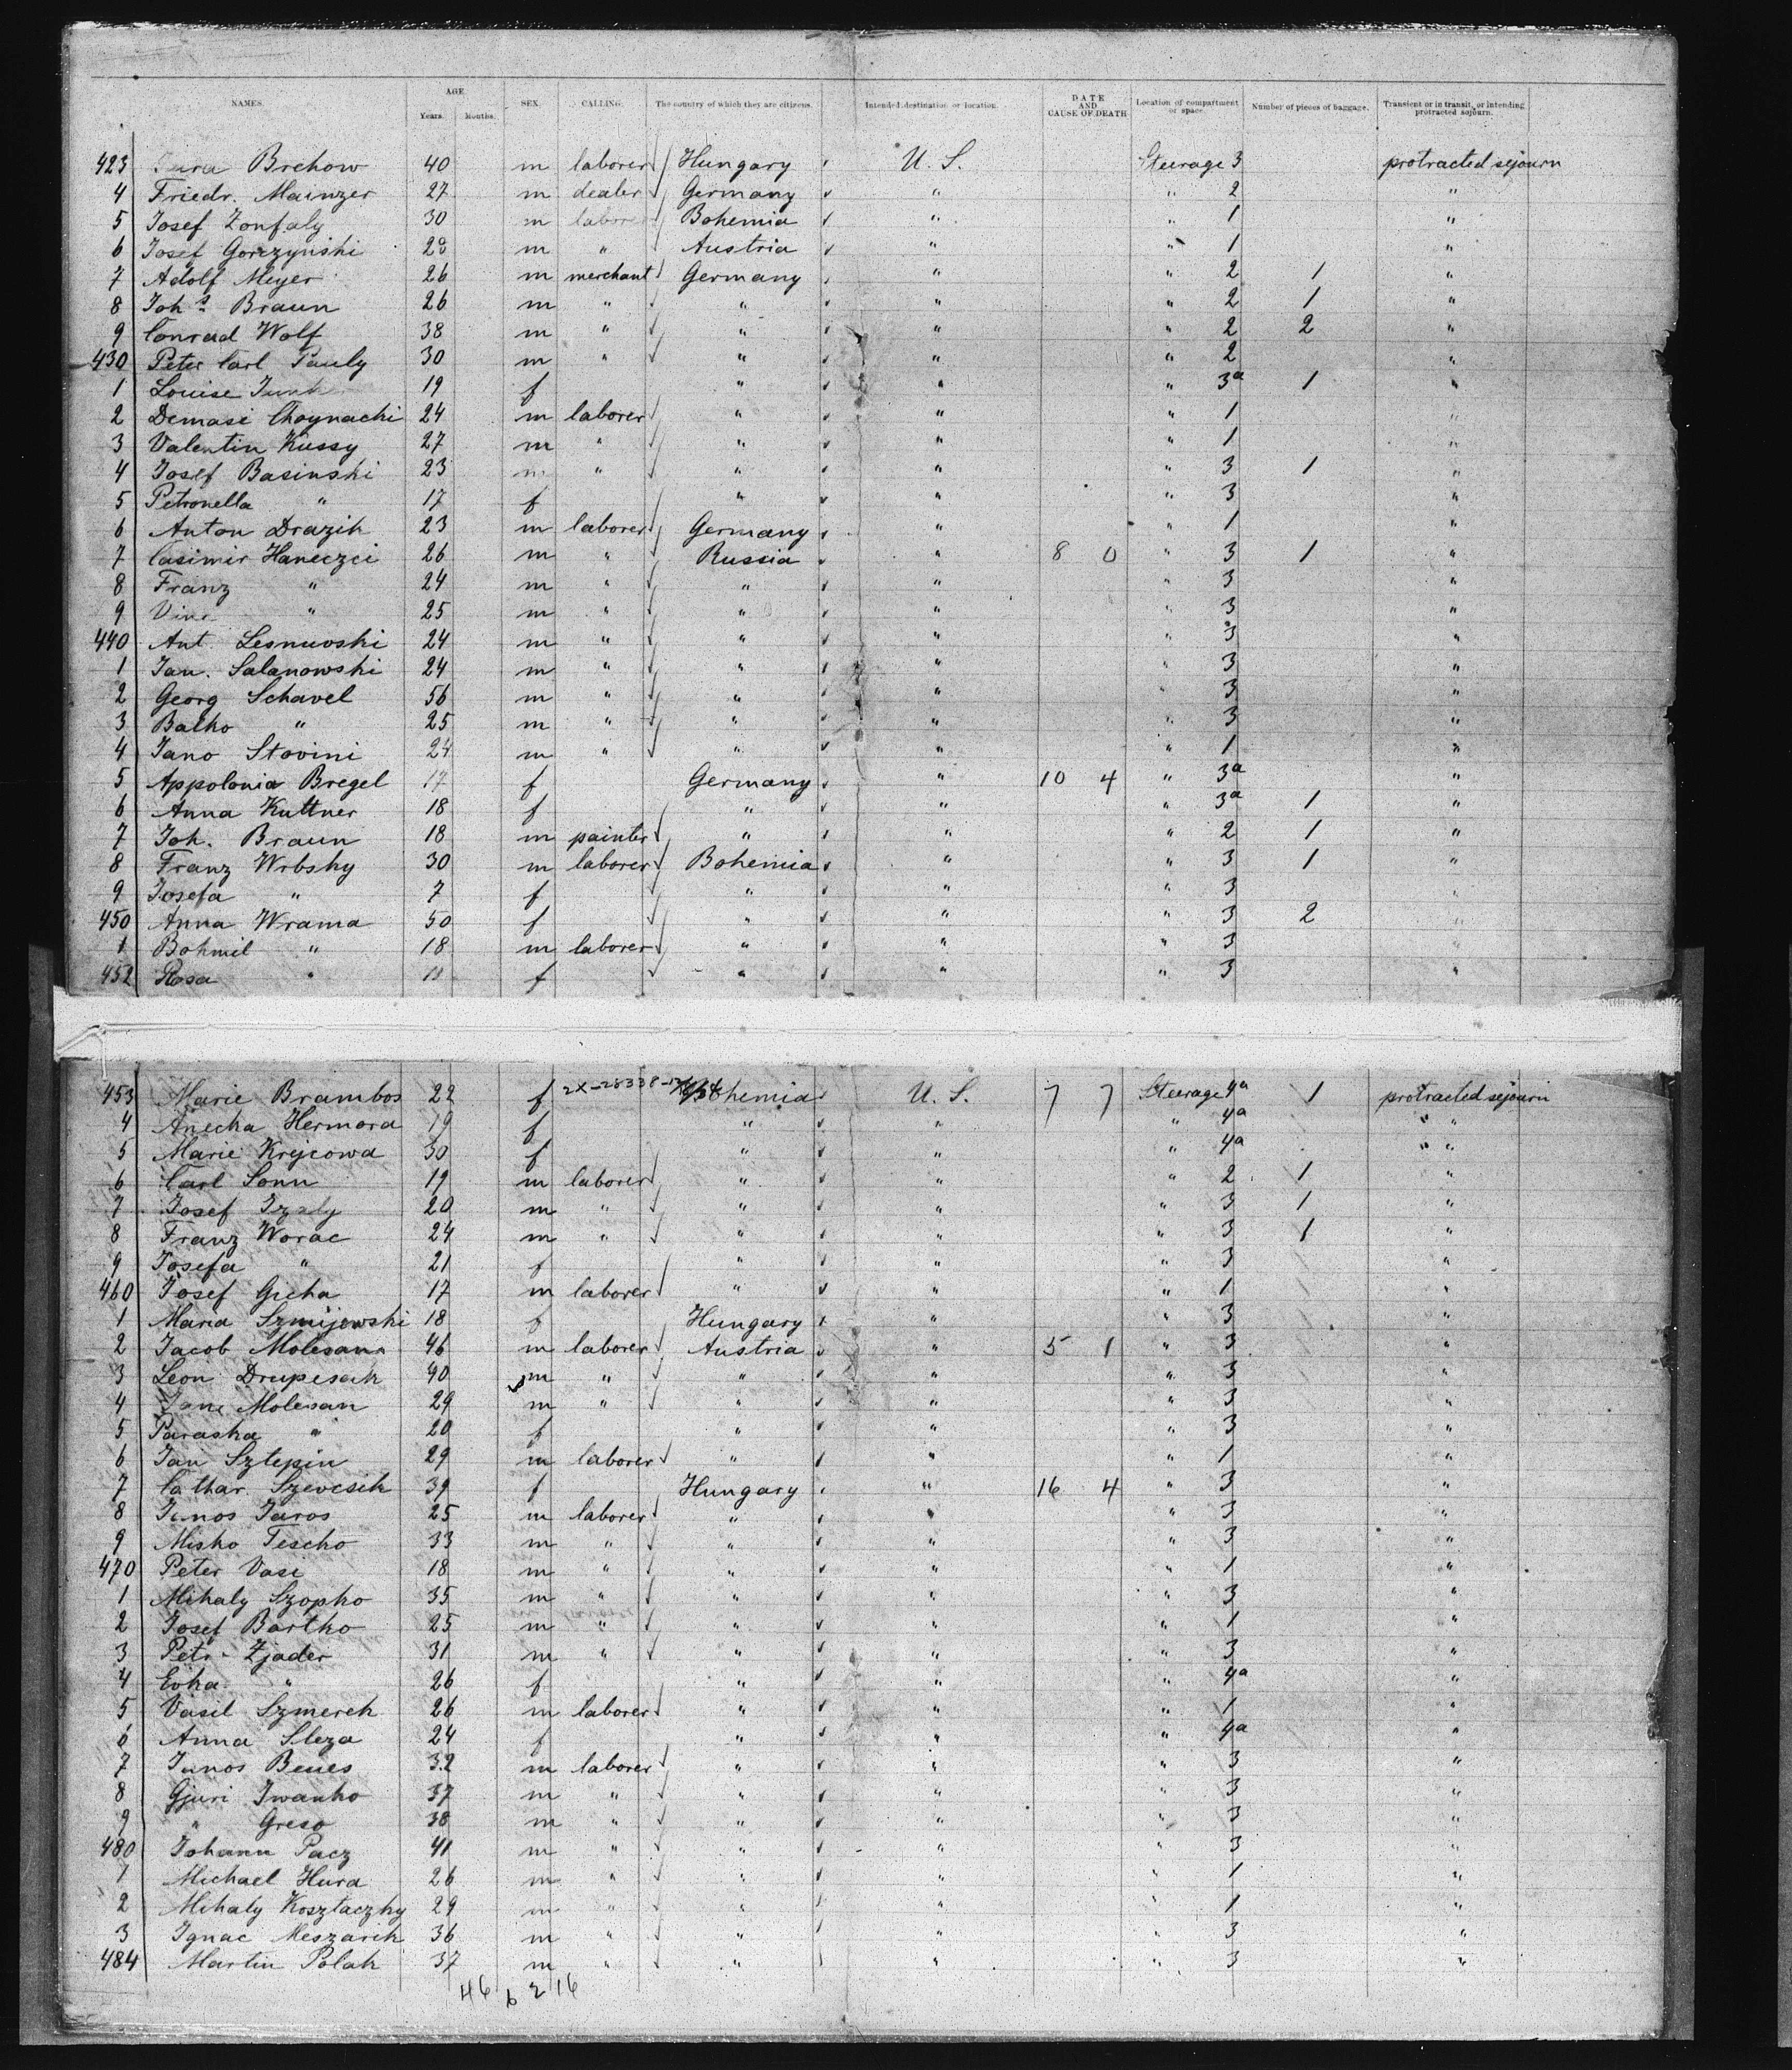 NAMES. AGE SEX. CALLING. The country of which they are citizens. Intended destination or location. DATE AND CAUSE OF DEATH Location of compartment or space. Number of pieces of baggage. Transient or in transit, or intending protracted sojourn.
Years. Months.
423 Brehow 40 m laborer Hungary U. S. Steerage 3 protracted sejourn
4 Friedr. Mainzer 27 m dealer Germany " " 2 "
5 Josef Zonfaly 30 m laborer Bohemia " " 1 "
6 Josef Gorczynski 28 m " Austria " " 1 "
7 Adolf Meyer 26 m merchant Germany " " 2 1 "
8 Johs Braun 26 m " " " " 2 1 "
9 Conrad Wolf 38 m " " " " 2 2 "
430 Peter Carl Pauly 30 m " " " " 2 "
1 Louise 19 f " " " 3a 1 "
2 Demasi Choynacki 24 m laborer " " " 1 "
3 Valentin Kussy 27 m " " " " 1 "
4 Josef Basinski 23 m " " " " 3 1 "
5 Petronella " 17 f " " " 3 "
6 Anton Drazik 23 m laborer Germany " " 1 "
7 Casimir Haneczci 26 m " Russia " 8 0 " 3 1 "
8 Franz " 24 m " " " " 3 "
9 " 25 m " " " " 3 "
440 Ant. Lesnuoski 24 m " " " " 3 "
1 Jan. Salanowski 24 m " " " " 3 "
2 Georg Schavel 56 m " " " " 3 "
3 Balko " 25 m " " " " 3 "
4 Jano Stovini 24 m " " " " 1 "
5 Appolonia Bregel 17 f Germany " 10 4 " 3a "
6 Anna Kuttner 18 f " " " 3a 1 "
7 Joh. Braun 18 m painter " " " 2 1 "
8 Franz Wrbsky 30 m laborer Bohemia " " 3 1 "
9 Josefa " 7 f " " " 3 "
450 Anna Wrama 50 f " " " 3 2 "
1 Bohmil " 18 m laborer " " " 3 "
452 Rosa " f " " " 3 "
453 Marie Brambos 22 f 2X-28338- Bohemia U. S. 7 7 Steerage 4a 1 protracted sejourn
4 Anecka Hermora 19 f " " " 4a " "
5 Marie Krejcowa 30 f " " " 4a " "
6 Carl Sonn 19 m laborer " " " 2 1 "
7 Josef 20 m " " " " 3 1 "
8 Franz Worac 24 m " " " " 3 1 "
9 Josefa " 21 f " " " 3 "
460 Josef Gicha 17 m laborer " " " 1 "
1 Maria Szmijewski 18 f Hungary " " 3 "
2 Jacob Molesan 46 m laborer Austria " 5 1 " 3 "
3 Leon Drupesak 40 m " " " " 3 "
4 Molesan 29 m " " " " 3 "
5 Paraska " 20 f " " " 3 "
6 Jan Sztepin 29 m laborer " " " 1 "
7 Cathar. Szevcsik 39 f Hungary " 16 4 " 3 "
8 Janos Jaros 25 m laborer " " " 3 "
9 Misko Tescho 33 m " " " " 3 "
470 Peter Vasi 18 m " " " " 1 "
1 Mihaly Szopko 35 m " " " " 3 "
2 Josef Bartko 25 m " " " " 1 "
3 Petr Zjader 31 m " " " " 3 "
4 Evka " 26 f " " " 4a "
5 Vasil Szmerek 26 m laborer " " " 1 "
6 Anna Sleza 24 f " " " 4a "
7 Janos Benes 32 m laborer " " " 3 "
8 Gjuri Iwanko 37 m " " " " 3 "
9 " Greso 38 m " " " " 3 "
480 Johann Pacz 41 m " " " " 3 "
1 Michael Hura 26 m " " " " 1 "
2 Mihaly Kosztaczky 29 m " " " " 1 "
3 Ignac Meszarik 36 m " " " " 3 "
484 Martin Polak 37 m " " " " 3 "
46 6 2 16